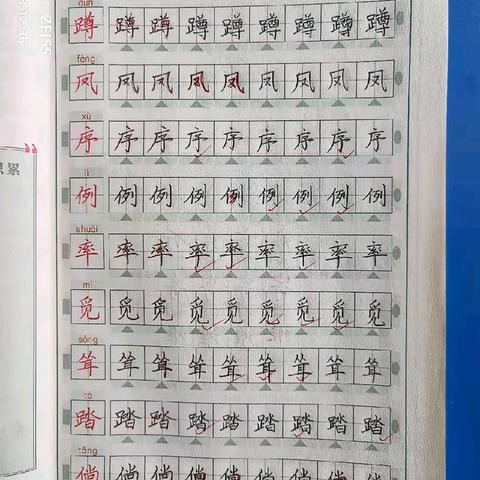 dūn
蹲 蹲 蹲 蹲 蹲 蹲 蹲 蹲 蹲
fèng
凤 凤 凤 凤 凤 凤 凤 凤 凤
xù
序 序 序 序 序 序 序 序 序
lì
例 例 例 例 例 例 例 例 例
shuài
率 率 率 率 率 率 率 率 率
mì
觅 觅 觅 觅 觅 觅 觅 觅 觅
sǒng
耸 耸 耸 耸 耸 耸 耸 耸 耸
tà
踏 踏 踏 踏 踏 踏 踏 踏 踏
tǎng
倘 倘 倘 倘 倘 倘 倘 倘 倘
累
ZEISS